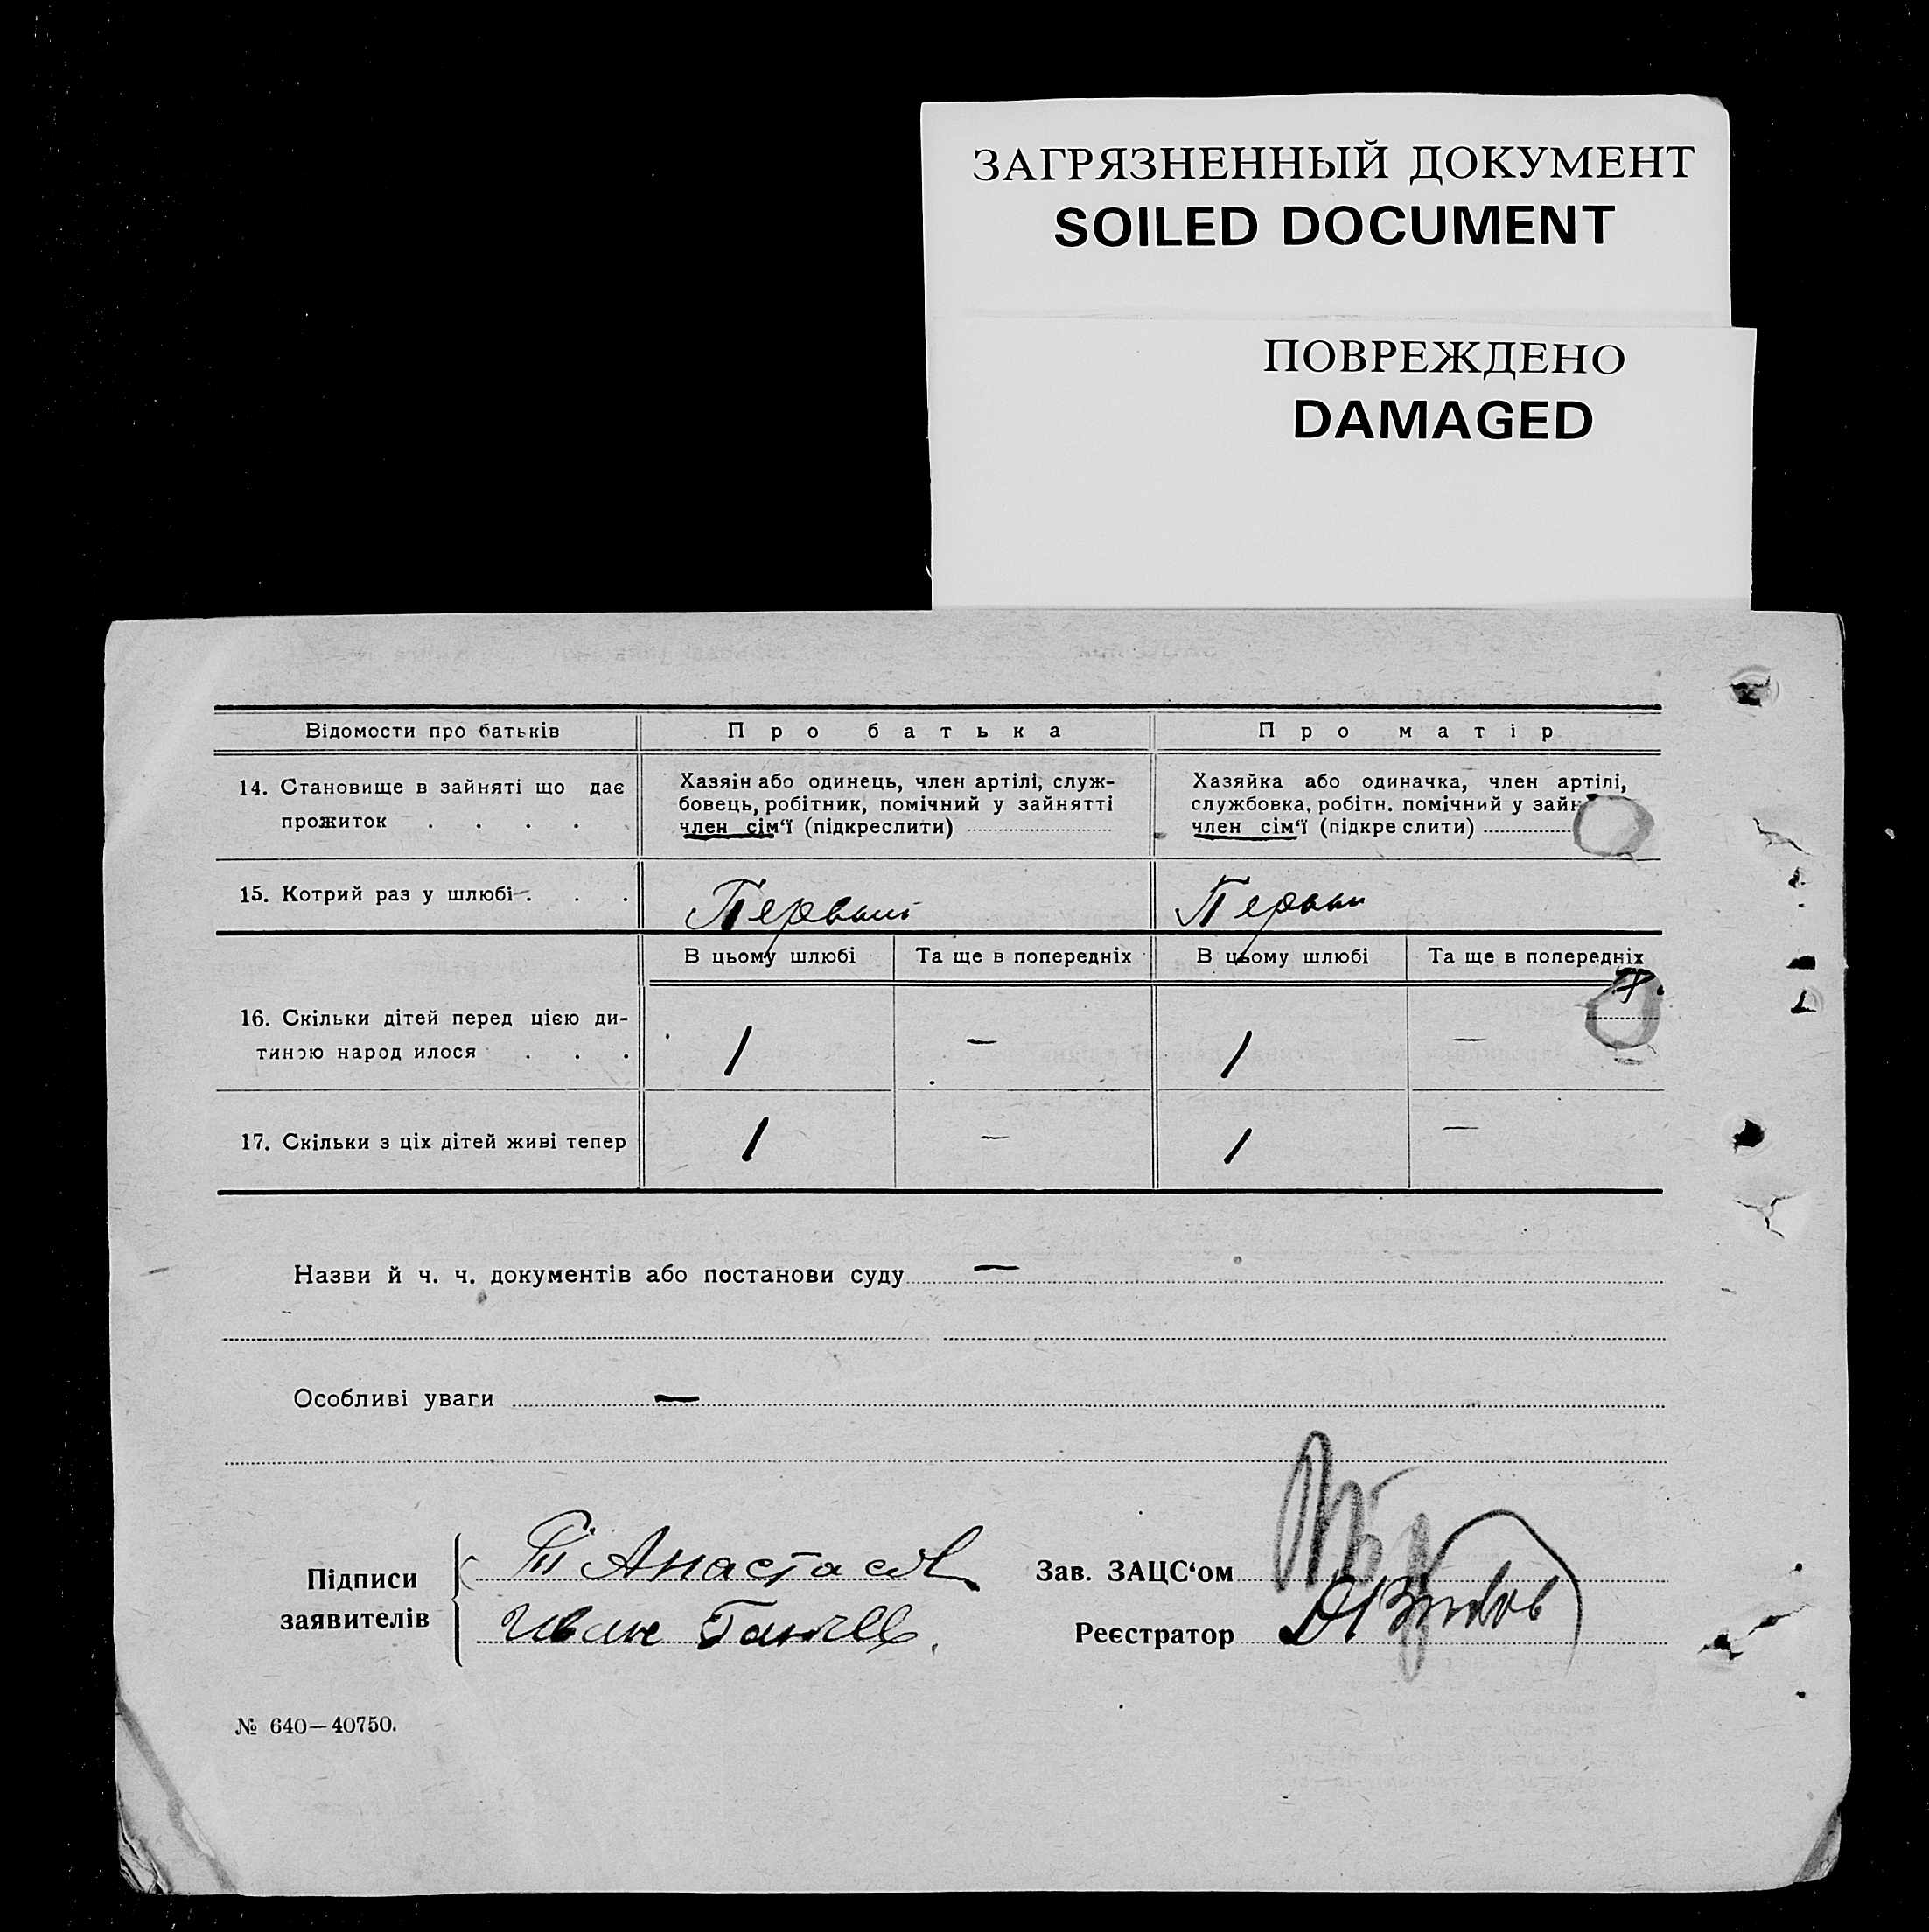 ЗАГРЯЗНЕННЫЙ ДОКУМЕНТ
SOILED DOCUMENT
ПОВРЕЖДЕНО
DAMAGED
Відомости про батьків
Про батька
Про матір
14. Становище в зайняті що дає
прожиток . . . .
Хазяін або одинець, член артілі, служ-
бовець, робітник, помічний у зайнятті
член сім‘ї (підкреслити)
Хазяйка або одиначка, член артілі,
службовка, робітн. помічний у зайн
член сім‘ї (підкре слити)
15. Котрий раз у шлюбі . . .
Первый
Первый
В цьому шлюбі
Та ще в попередніх
В цьому шлюбі
Та ще в попередніх
16. Скільки дітей перед цією ди-
тиною народ илося . . .
1
—
1
—
17. Скільки з ціх дітей живі тепер
1
—
1
—
Назви й ч. ч. документів або постанови суду —
Особливі уваги —
Підписи
заявителів
Анастасов
Иване
Зав. ЗАЦС‘ом
Реєстратор
№ 640—40750.